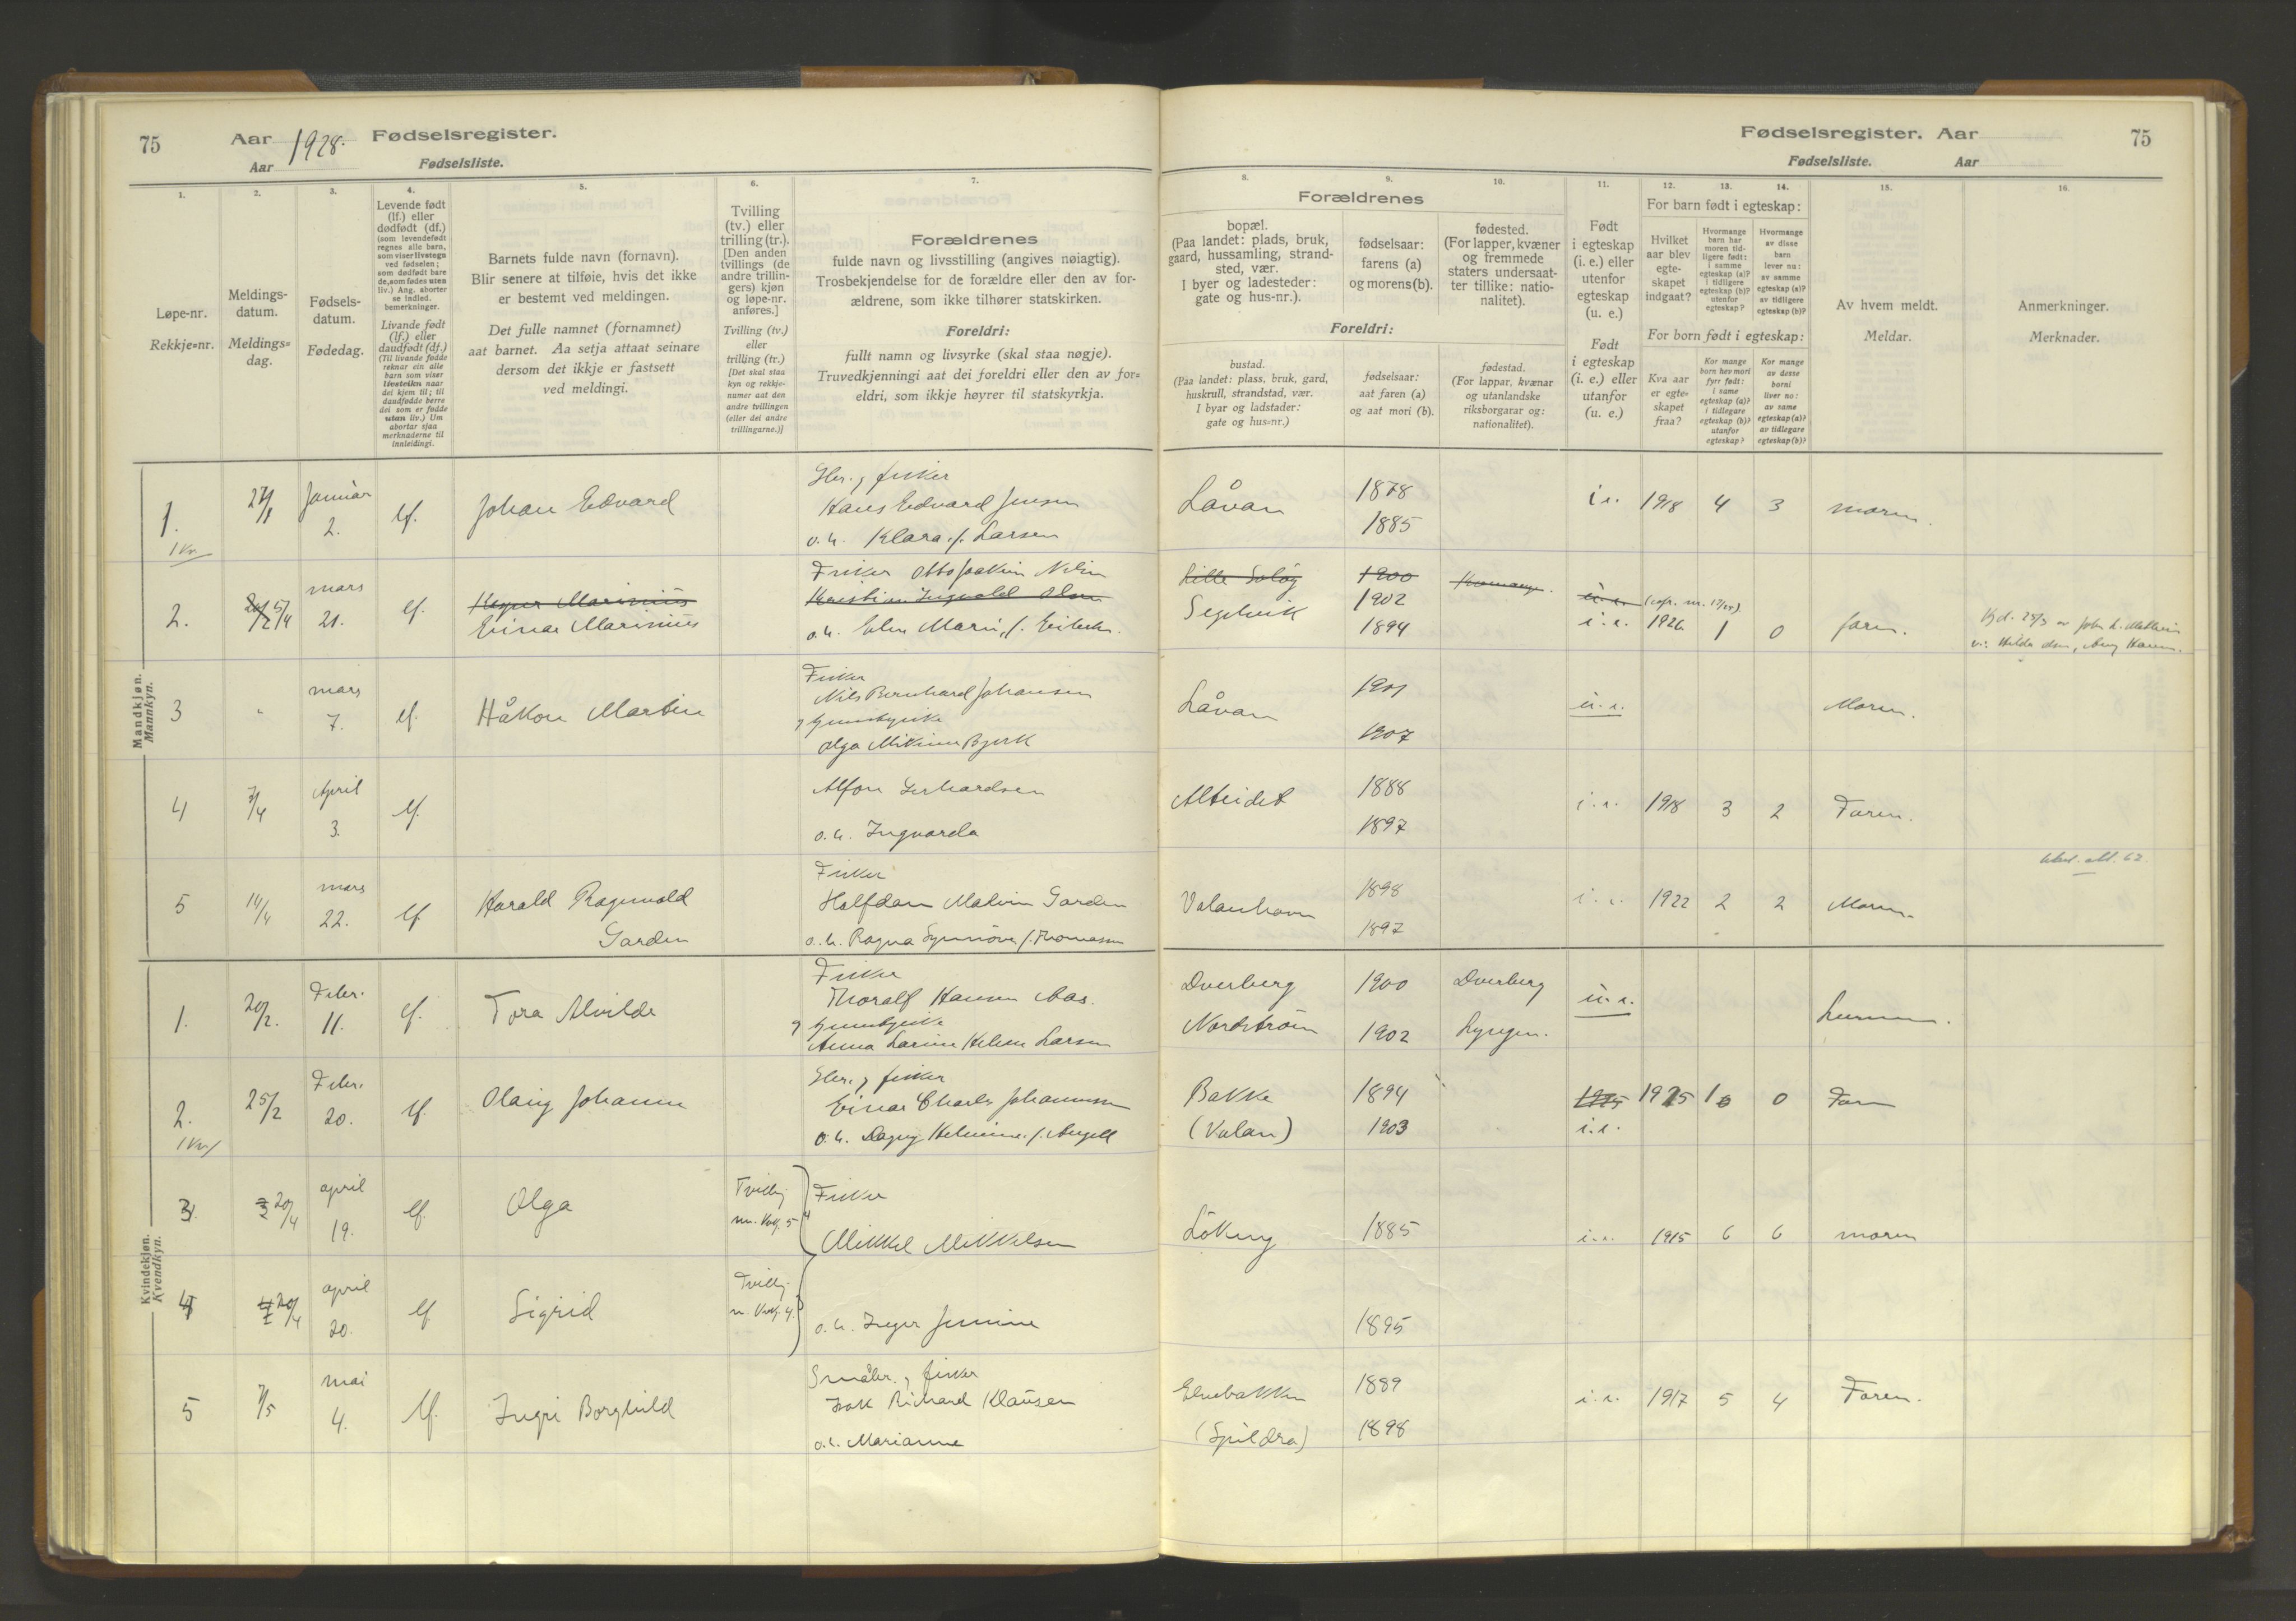 75 Aar 1928. Fødselsregister.
Aar Fødselsliste.
1.
2.
3.
4.
5.
6.
7.
Løpe-nr.
Rekkje=nr.
Meldings-
datum.
Meldings=
dag.
Fødsels-
datum.
Fødedag.
Levende født
(lf.) eller
dødfødt (df.)
(som levendefødt
regnes alle barn,
som viser livstegn
ved fødselen;
som dødfødt bare
de, som fødes uten
liv.) Ang. aborter
se indled.
bemerkninger.
Livande født
(lf.) eller
daudfødt (df.)
(Til livande fødde
reknar ein alle
barn som viser
livsteikn naar
dei kjem til; til
daudfødde berre
dei som er fødde
utan liv.) Um
abortar sjaa
merknaderne til
innleidingi.
Barnets fulde navn (fornavn).
Blir senere at tilføie, hvis det ikke
er bestemt ved meldingen.
Det fulle namnet (fornamnet)
aat barnet. Aa setja attaat seinare
dersom det ikkje er fastsett
ved meldingi.
Tvilling
(tv.) eller
trilling (tr.).
[Den anden
tvillings (de
andre trillin-
gers) kjøn
og løpe-nr.
anføres.]
Tvilling (tv.)
eller
trilling (tr.)
[Det skal staa
kyn og rekkje-
numer aat den
andre tvillingen
(eller dei andre
trillingarne.)]
Forældrenes
fulde navn og livsstilling (angives nøiagtig).
Trosbekjendelse for de forældre eller den av for-
ældrene, som ikke tilhører statskirken.
Foreldri:
fullt namn og livsyrke (skal staa nøgje).
Truvedkjenningi aat dei foreldri eller den av for=
eldri, som ikkje høyrer til statskyrkja.
Mandkjøn.
Mannkyn.
1.
1 Kv.
Januar
2.
lf.
Johan Edvard
Gbr. , fisker
Hans Edvard Jensen
o. h. Klara f. Larsen
2.
mars
21.
lf.
Marinius
Einar Marinius
Fisker Otto Joakim
3
mars
7.
lf.
Håkon Martin
Fisker
Nils Bernhard Johansen
Olga
4
7/4
April
3.
lf.
Alfon Gerhardsen
o. h. Ingvarda
5
14/4
mars
22.
lf
Harald Ragnvald
Garden
Fisker
Halfdan Malvin Garden
o. h. Ragna Synnöve f. Thomassen
Kvindekjøn.
Kvendkyn.
1.
20/2.
Febr.
11.
lf.
Tora Alvilde
Fisker
Thoralf Hansen Aas.
Anna Larine Helene Larsen
2.
1 Kv.
25/2
Febr.
20.
lf.
Olaug Johanne
Gbr. , fisker
Einar Charles Johannessen
o. h. Dagny Helmine f. Angell
3.
20/4
april
19.
lf.
Olga
Tvilling
Fisker
Mikkel Mikkelsen
4
20/4
april
20.
lf
Sigrid
Tvilling
o. h. Inger Jensine
5
7/5
mai
4.
lf.
Ingri Borghild
Småbr. , fisker
Isak Richard Klausen
o. h. Marianne
Fødselsregister. Aar 75
Fødselsliste. Aar
8.
9.
10.
11.
12.
13.
14.
15.
16.
Forældrenes
bopæl.
(Paa landet: plads, bruk,
gaard, hussamling, strand-
sted, vær.
I byer og ladesteder:
gate og hus-nr.).
fødselsaar:
farens (a)
og morens (b).
fødested.
(For lapper, kvæner
og fremmede
staters undersaat-
ter tillike: natio-
nalitet).
Foreldri:
bustad.
(Paa landet: plass, bruk, gard,
huskrull, strandstad, vær.
I byar og ladstader:
gate og hus=nr.)
fødselsaar:
aat faren (a)
og aat mori (b).
fødestad.
(For lappar, kvænar
og utanlandske
riksborgarar og:
nationalitet).
Født
i egteskap
(i. e.) eller
utenfor
egteskap
(u. e.)
Født
i egteskap
(i. e.) eller
utanfor
(u. e.)
For barn født i egteskap:
Hvilket
aar blev
egte-
skapet
indgaat?
Hvormange
barn har
moren tid-
ligere født:
i samme
egteskap (a)?
i tidligere
egteskap (b)?
utenfor
egteskap?
Hvormange
av disse
barn
lever nu:
av samme
egteskap (a)?
av tidligere
egteskap (b)?
For born født i egteskap:
Kva aar
er egte-
skapet
fraa?
Kor mange
born hev mori
fyrr født:
i same
egteskap (a)?
i tidlegare
egteskap (b)?
utanfor
egteskap?
Kor mange
av desse
borni
liver no:
av same
egteskap (a)?
av tidlegare
egteskap (b)?
Av hvem meldt.
Meldar.
Anmerkninger.
Merknader.
Låvan
1878
1885
i. e.
1918 4 3 moren.
Lille
1900
Segelvik
1902
1894
i. e. 1926 1 0 faren.
Låvan
1901
1907
u. e.
Moren.
Alteidet
1888
1897
i. e. 1918 3 2 Faren.
Valanhavn
1898
1897
i. e. 1922 2 2 Moren.
Dverberg 1900 Dverberg
Nordströim 1902 Lyngen.
u. e.
Bakke
(Valan)
1894
1903
1925 1925 1 0 Faren
i. e.
Lökvug
1885
1895
i. e. 1915 6 6 moren
Elvebakken
(Spildra)
1889
1898
i. e. 1917 5 4 Faren.